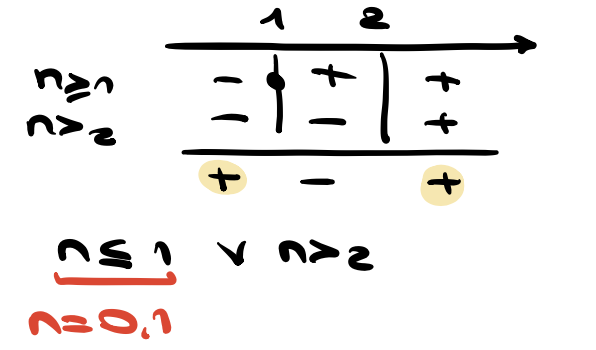 1 2
n≥1 - + +
n>2 - - +
+ - +
n≤1 ∨ n>2
n=0,1